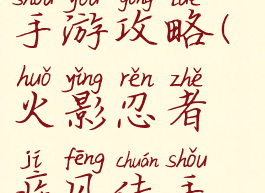 shǒu yóu gōng lüè
手游攻略(
huǒ yǐng rěn zhě
火影忍者
jí fēng chuán shǒu
疾风传手